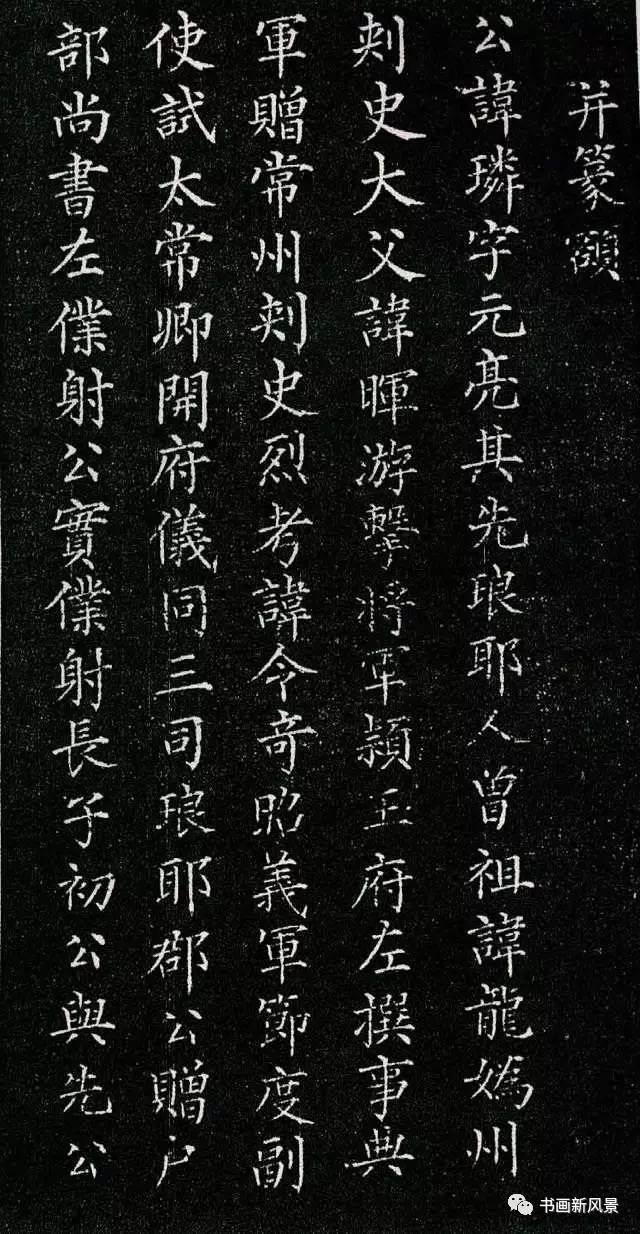 并篆額
公諱璘字元亮其先琅耶人曾祖諱龍嬀州
刾史大父諱暉游擊將軍潁王府左撰事典
軍贈常州刾史烈考諱令竒昭義軍節度副
使試太常卿開府儀同三司琅耶郡公贈户
部尚書左僕射公實僕射長子初公與先公
书画新风景